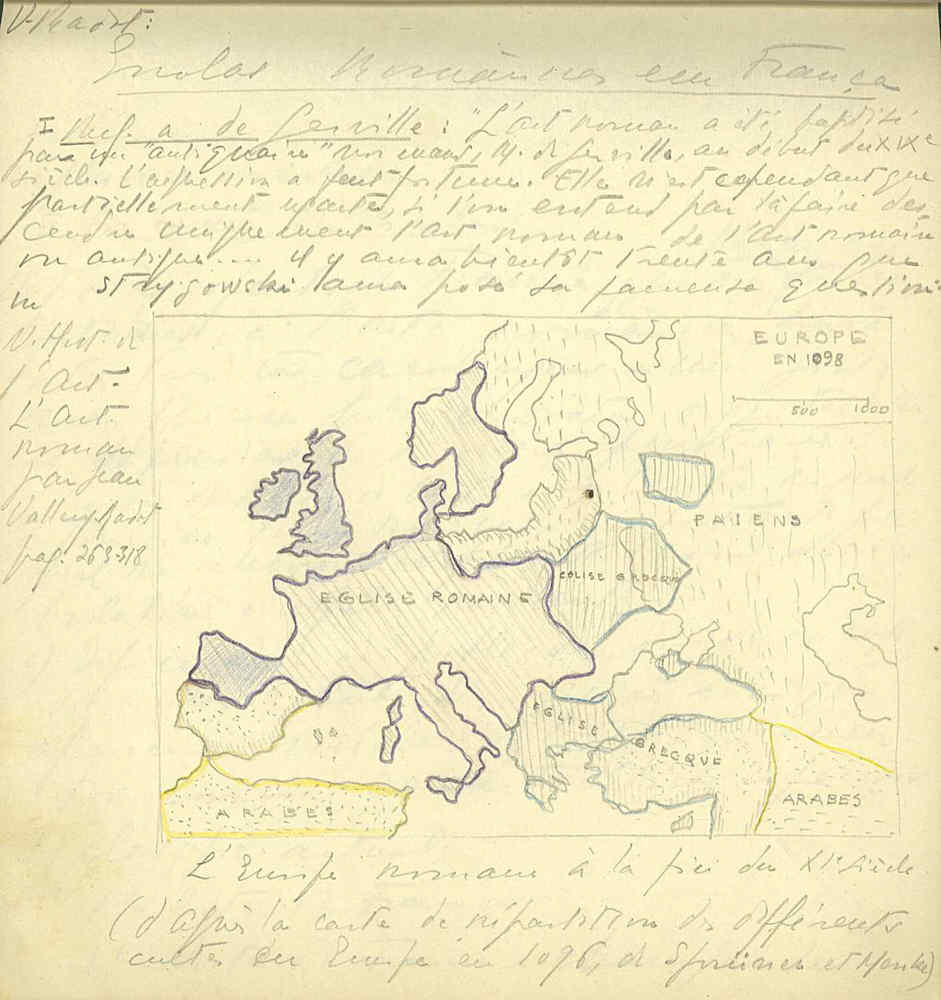 V. Radot:
Escolas Românicas em França
I Ref. a de Gerville: "L'art roman a été baptisé
par un "antiquaire" normand, M. de Gerville, au début du XIXe
siècle. L'expression a fait fortune. Elle n'est cependant que
partiellement exacte, si l'on entend par là faire des
cendre uniquement l'art roman de l'art romain
ou antique.... il y aura bientôt trente ans que
Strygowski aura posé sa fameuse question:
in
V. Hist. de
l'Art.
L'Art
roman
par Jean
Vallery Radot
pag.
EUROPE
EN 1098
500 1000
PAIENS
EGLISE GRECQUE
EGLISE ROMAINE
EGLISE
GRECQUE
ARABES
ARABES
L'Europe romane à la fin du XIe siècle
(d'après la carte de répartition des différents
cultes en Europe en 1096, de Sprüner et Menke)